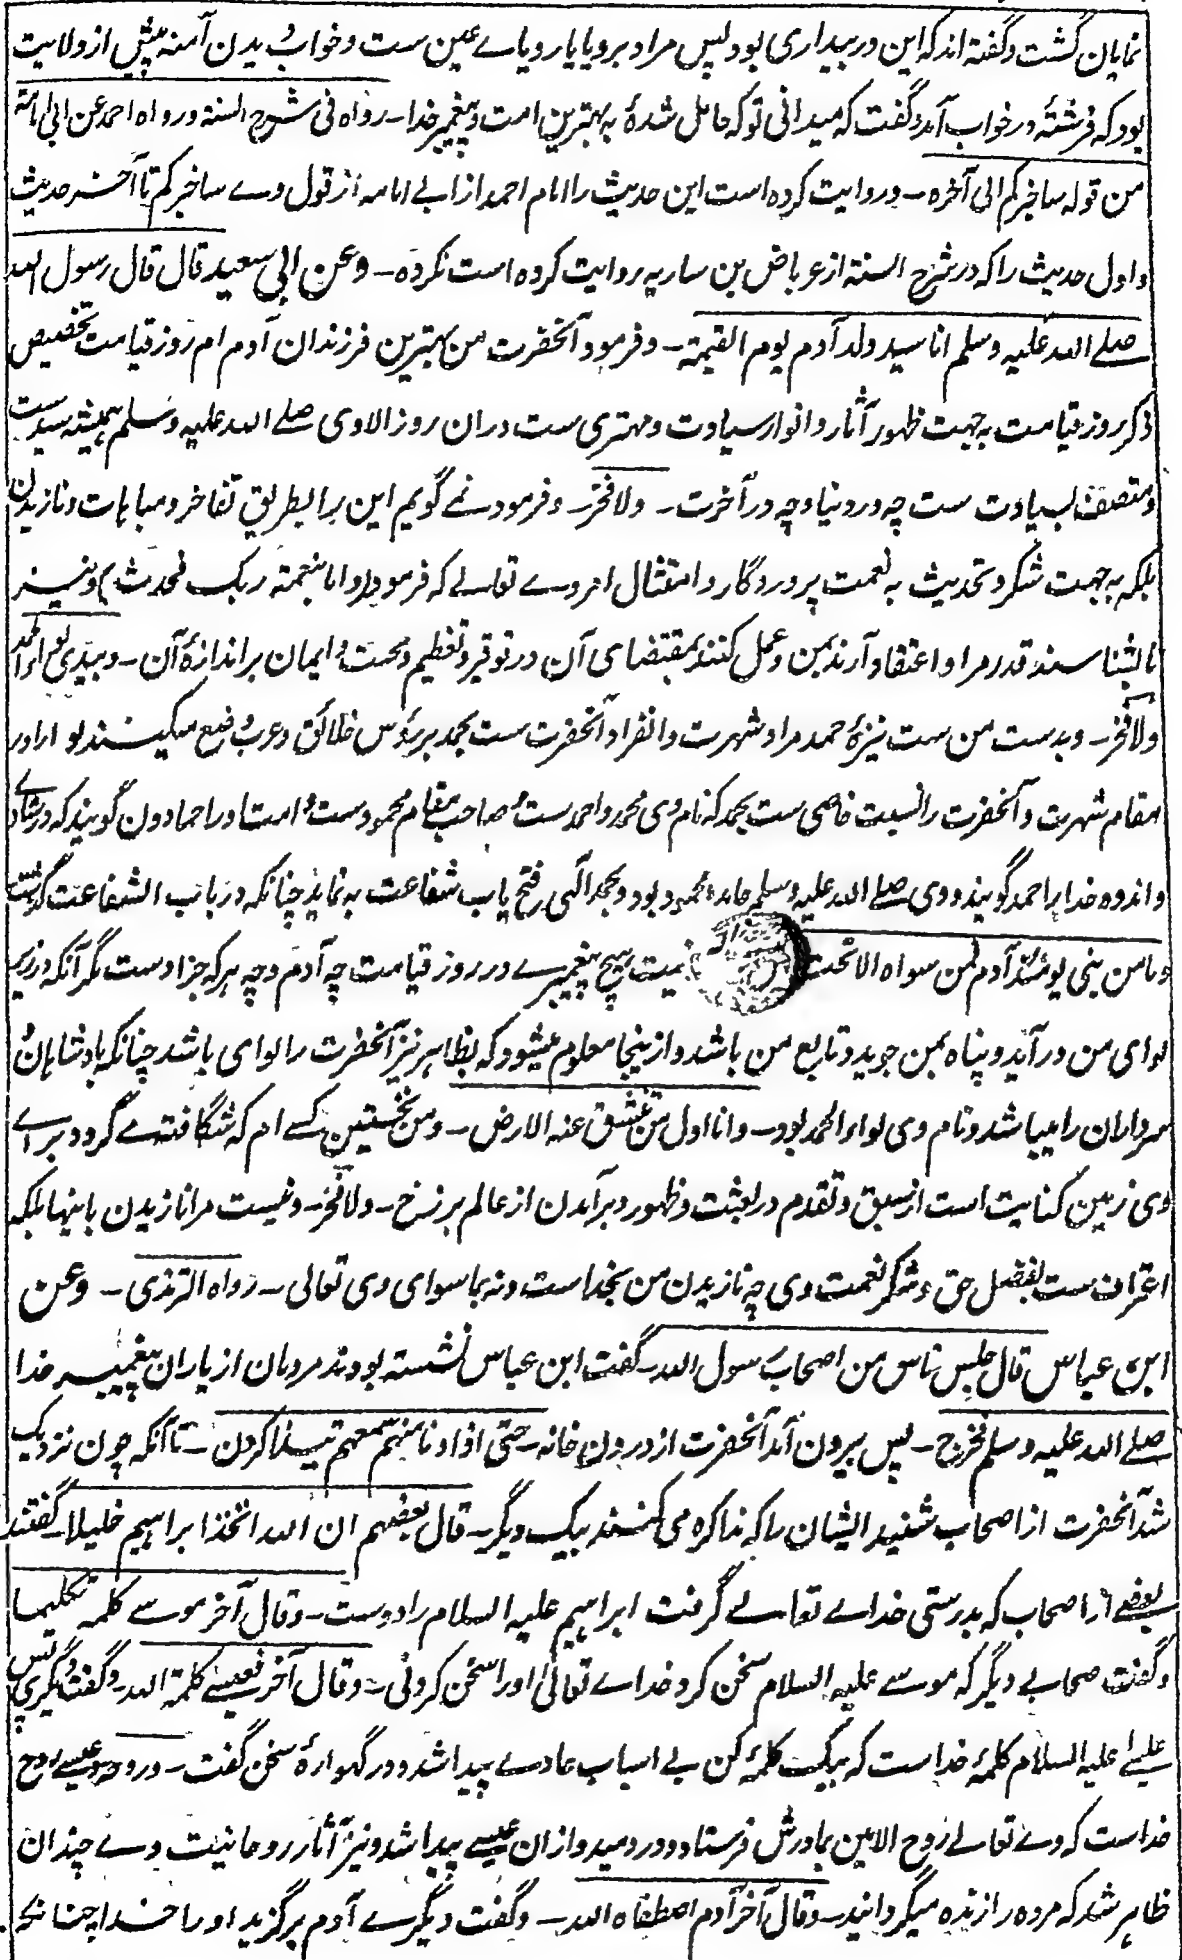 نمایان گشت و گفته اند که این در بیداری بود پس مراد برویا یا رویاے عین ست و خواب دیدن آمنه پیش از ولایت
بود که فرشتۀ در خواب آمد و گفت که میدانی تو که حامل شدۀ به بهترین امت و پیغمبر خدا ـ رواه فی شرح السنة و رواه احمد عن ابی امامة
من قوله ساخبرکم الی آخره ـ و روایت کرده است این حدیث را امام احمد از ابے امامه از قول وے ساخبرکم تا آخر حدیث
و اول حدیث را که در شرح السنة از عرباض بن ساریه روایت کرده است نکرده ـ وعن ابی سعید قال قال رسول الله
صلے الله علیه وسلم انا سید ولد آدم یوم القیمة ـ و فرمود آنحضرت من بهترین فرزندان آدم ام روز قیامت تخصیص
ذکر روز قیامت بجهت ظهور آثار و انوار سیادت و مهتری ست دران روز الا وی صلے الله علیه وسلم همیشه سیدست
و متصف بسیادت ست چه در دنیا و چه در آخرت ـ ولا فخر ـ و فرمود نمے گویم این را بطریق تفاخر و مباهات و نازیدن
بلکه بجهت شکر و تحدیث به نعمت پروردگار و امتثال امر وے تعالے که فرمود (واما بنعمة ربک فحدث) و نیز
تا بشناسند قدر مرا و اعتقاد آرند بمن و عمل کنند بمقتضای آن در توقیر و تعظیم و محبت و ایمان بر اندازۀ آن ـ وبیدی لواء الحمد
ولا فخر ـ و بدست من ست نیزۀ حمد مراد شهرت و انفراد آنحضرت ست بحمد بر رؤس خلائق و عرب وضع میکنند لوا را در
مقام شهرت و آنحضرت را نسبت خاصی ست بحمد که نام وی محمد و احمد ست و صاحب مقام محمود ست و امت او را حمادون گویند که در شادی
و اندوه خدا را حمد گویند و وی صلے الله علیه وسلم حامد و محمود بود و بحمد الٰهی فتح باب شفاعت به نماید چنانکه در باب الشفاعت گذشت
وما من نبی یومئذ آدم فمن سواه الا تحت نیست هیچ پیغمبرے در روز قیامت چه آدم و چه هر که جز اوست مگر آنکه در زیر
لوای من در آید و پناه بمن جوید و تابع من باشد و ازینجا معلوم میشود که بظاهر نیز آنحضرت را لوای باشد چنانکه بادشاهان و
سرداران را میباشد و نام وی لواء الحمد بود ـ وانا اول من تنشق عنه الارض ـ و من نخستین کسے ام که شگافته مے گردد براے
وی زمین کنایت است از سبق و تقدم در بعثت و ظهور و برآمدن از عالم برزخ ـ ولا فخر ـ و نیست مرا نازیدن باینها بلکه
اعتراف ست بفضل حق و شکر نعمت وی چه نازیدن من بخداست و نه بما سوای وی تعالی ـ رواه الترمذی ـ وعن
ابن عباس قال جلس ناس من اصحاب رسول الله ـ گفت ابن عباس نشسته بودند مردمان از یاران پیغمبر خدا
صلے الله علیه وسلم فخرج ـ پس بیرون آمد آنحضرت از درون خانه ـ حتی اذا دنا منهم سمعهم یتذاکرون ـ تا آنکه چون نزدیک
شد آنحضرت از اصحاب شنید ایشان را که مذاکره می کنند بیک دیگر ـ قال بعضهم ان الله اتخذ ابراهیم خلیلا ـ گفتند
بعضے از اصحاب که بدرستی خداے تعالے گرفت ابراهیم علیه السلام را دوست ـ وقال آخر موسے کلمه تکلیما
و گفت صحابے دیگر که موسے علیه السلام سخن کرد خداے تعالیٰ او را سخن کردنی ـ وقال آخر فعیسے کلمة الله ـ و گفت دیگری پس
عیسے علیه السلام کلمۀ خداست که بیک کلمۀ کن بے اسباب عادے پیدا شد و در گهوارۀ سخن گفت ـ وروحه و عیسے روح
خداست که وے تعالے روح الامین بمادرش فرستاد و در دمید و ازان عیسے پیدا شد و نیز آثار روحانیت وے چندان
ظاهر شد که مرده را زنده میگردانید ـ وقال آخر آدم اصطفاه الله ـ و گفت دیگرے آدم برگزید او را خدا چنانکه